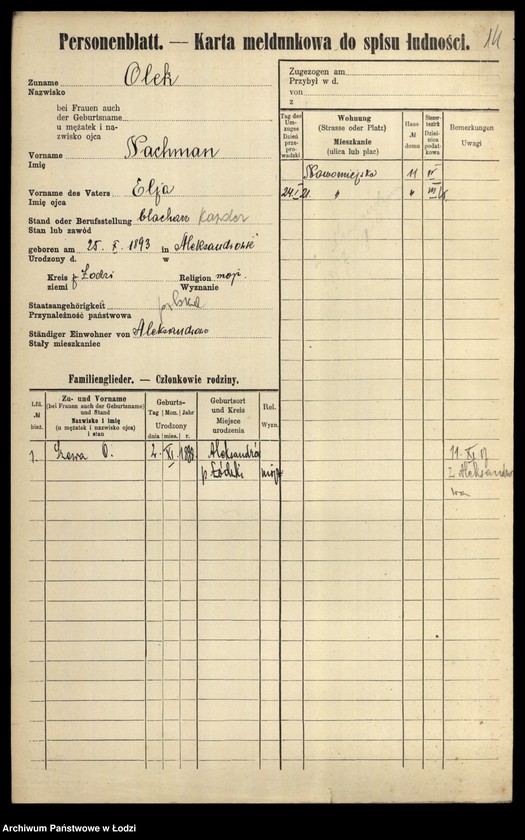 Personenblatt. — Karta meldunkowa do spisu ludności.
14
Zuname Olek
Nazwisko
bei Frauen auch
der Geburtsname
u mężatek i na-
zwisko ojca
Vorname Nachman
Imię
Vorname des Vaters Elja
Imię ojca
Stand oder Berufsstellung blacharz
Stan lub zawód
geboren am 25. X. 1893 in
Urodzony d. w
Kreis Łodzi Religion mojż.
ziemi Wyznanie
Staatsangehörigkeit polska
Przynależność państwowa
Ständiger Einwohner von Aleksandrów
Stały mieszkaniec
Zugezogen am
Przybył w d.
von
z
Tag des Um-zuges Dzień prze-prowadzki
Wohnung (Strasse oder Platz) Mieszkanie (ulica lub plac)
Haus № domu
Steuer-bezirk Dziel-nica podat-kowa
Bemerkungen Uwagi
Nowomiejska 11 IV
24 I 21. " "
Familienglieder. — Członkowie rodziny.
Lfd. № bież.
Zu- und Vorname (bei Frauen auch der Geburtsname) und Stand Nazwisko i imię (u mężatek i nazwisko ojca) i stan
Geburts- Tag Mon. Jahr Urodzony dnia mies. r.
Geburtsort und Kreis Miejsce urodzenia
Rel. Wyzn.
1. O. 2. XI Aleksandrów 11. XI
p Łódzki mojż z Aleksandro
wa
Archiwum Państwowe w Łodzi